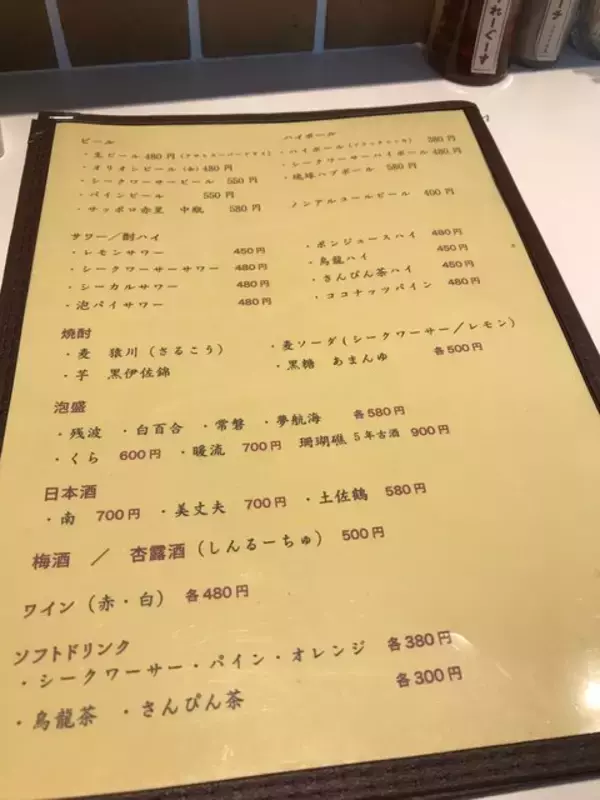 ビール
・生ビール 480円 (アサヒスーパードライ)
・オリオンビール (缶) 480円
・シークワーサービール 550円
・パインビール 550円
・サッポロ赤星 中瓶 580円
ハイボール
・ハイボール (ブラックニッカ) 380円
・シークワーサーハイボール 480円
・琉球ハブボール 580円
ノンアルコールビール 400円
サワー／酎ハイ
・レモンサワー 450円
・シークワーサーサワー 480円
・シーカルサワー 480円
・泡パイサワー 480円
・ポンジュースハイ 480円
・烏龍ハイ 450円
・さんぴん茶ハイ 450円
・ココナッツパイン 480円
焼酎
・麦 猿川（さるこう）
・芋 黒伊佐錦
・麦ソーダ(シークワーサー／レモン)
・黒糖 あまんゆ 各500円
泡盛
・残波 ・白百合 ・常磐 ・夢航海 各580円
・くら 600円 ・暖流 700円 珊瑚礁 5年古酒 900円
日本酒
・南 700円 ・美丈夫 700円 ・土佐鶴 580円
梅酒 ／ 杏露酒（しんるーちゅ） 500円
ワイン（赤・白） 各480円
ソフトドリンク
・シークワーサー・パイン・オレンジ 各380円
・烏龍茶 ・さんぴん茶 各300円